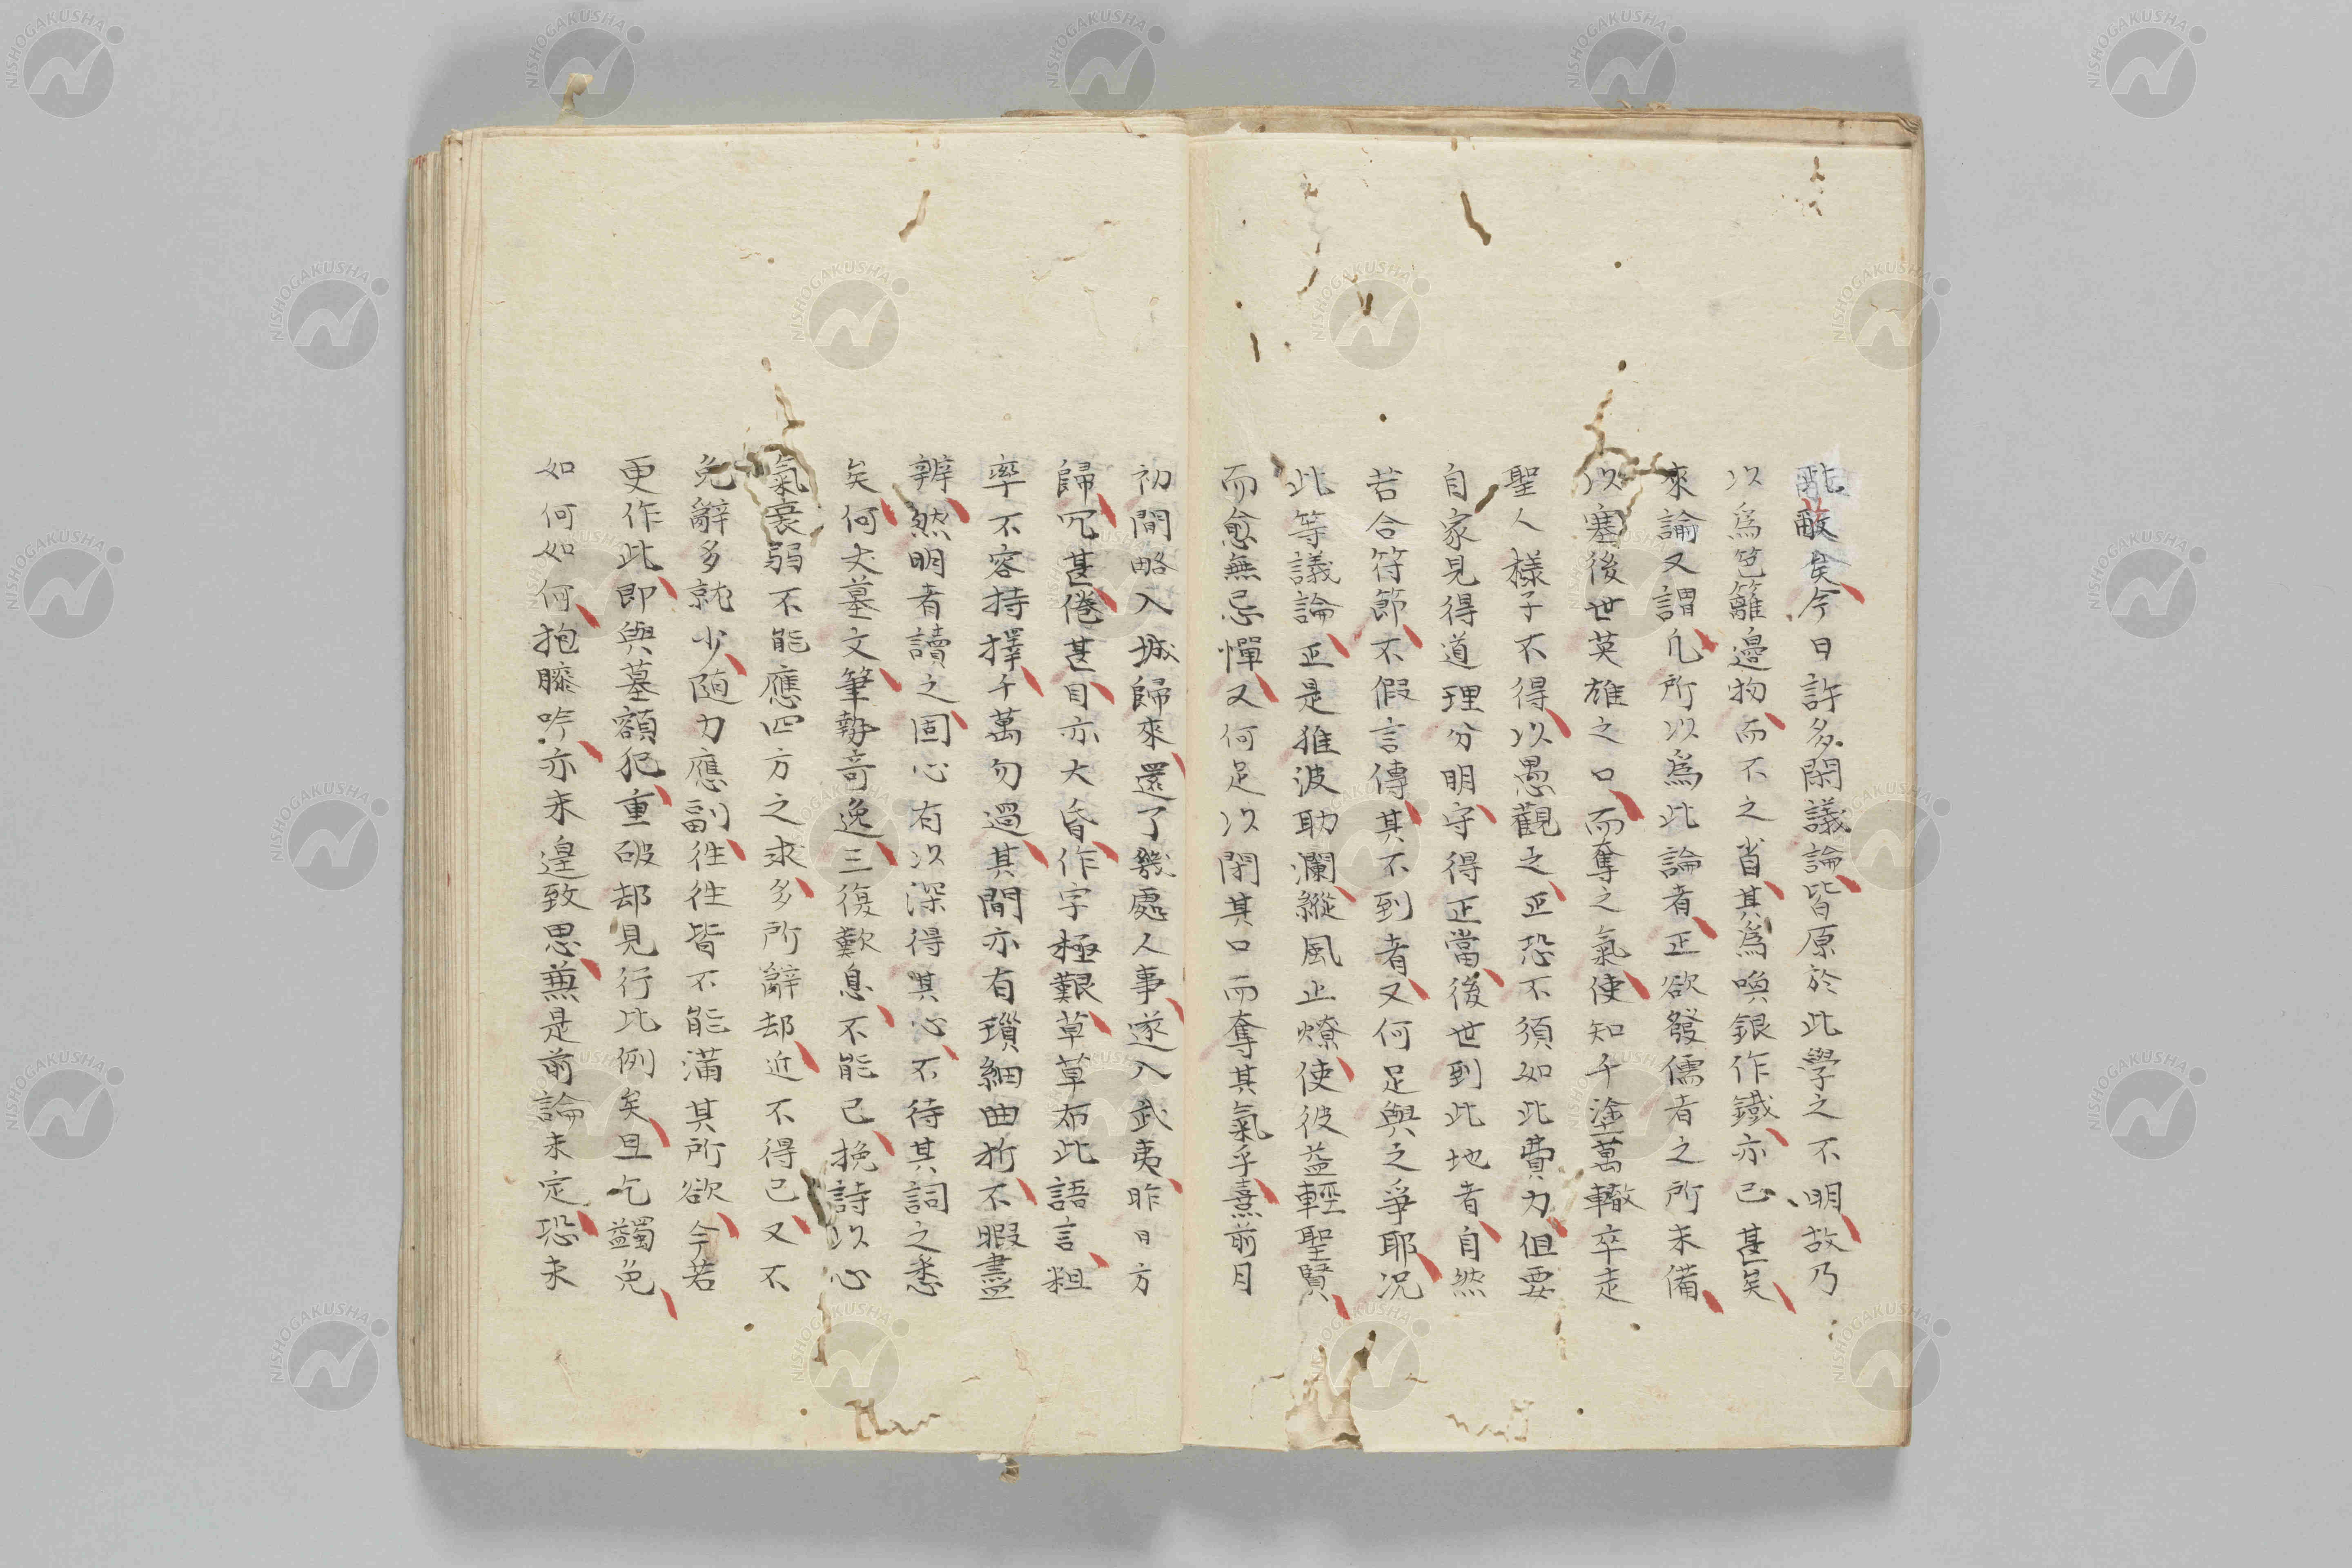 酖敵矣今日許多閑議論皆原於此學之不明故乃
以爲笆籬邉物而不之省其爲喚銀作鐵亦已甚矣
來諭又謂凢所以爲此論者正欲發儒者之所未備
以塞後世英雄之口而奪之氣使知千塗萬轍卒走
聖人樣子不得以愚觀之正恐不須如此費力但要
自家見得道理分明守得正當後世到此地者自然
若合符節不假言傳其不到者又何足與之爭耶况
此等議論正是推波助瀾縱風止燎使彼益輕聖賢
而愈無忌憚又何足以閉其口而奪其氣乎熹前月
初間略入城歸來還了幾處人事遂入武夷昨日方
歸冗甚倦甚目亦大昏作字極艱草草布此語言粗
率不容持擇千萬勿過其間亦有瑣細曲折不暇盡
辨然明者讀之固心有以深得其心不待其詞之悉
矣何丈墓文筆勢竒逸三復歎息不能已挽詩以心
氣衰弱不能應四方之求多所辭却近不得已又不
免辭多就少随力應副徃徃皆不能滿其所欲今若
更作此即與墓額犯重破却見行比例矣且乞蠲免
如何如何抱膝吟亦未遑致思兼是前論未定恐未